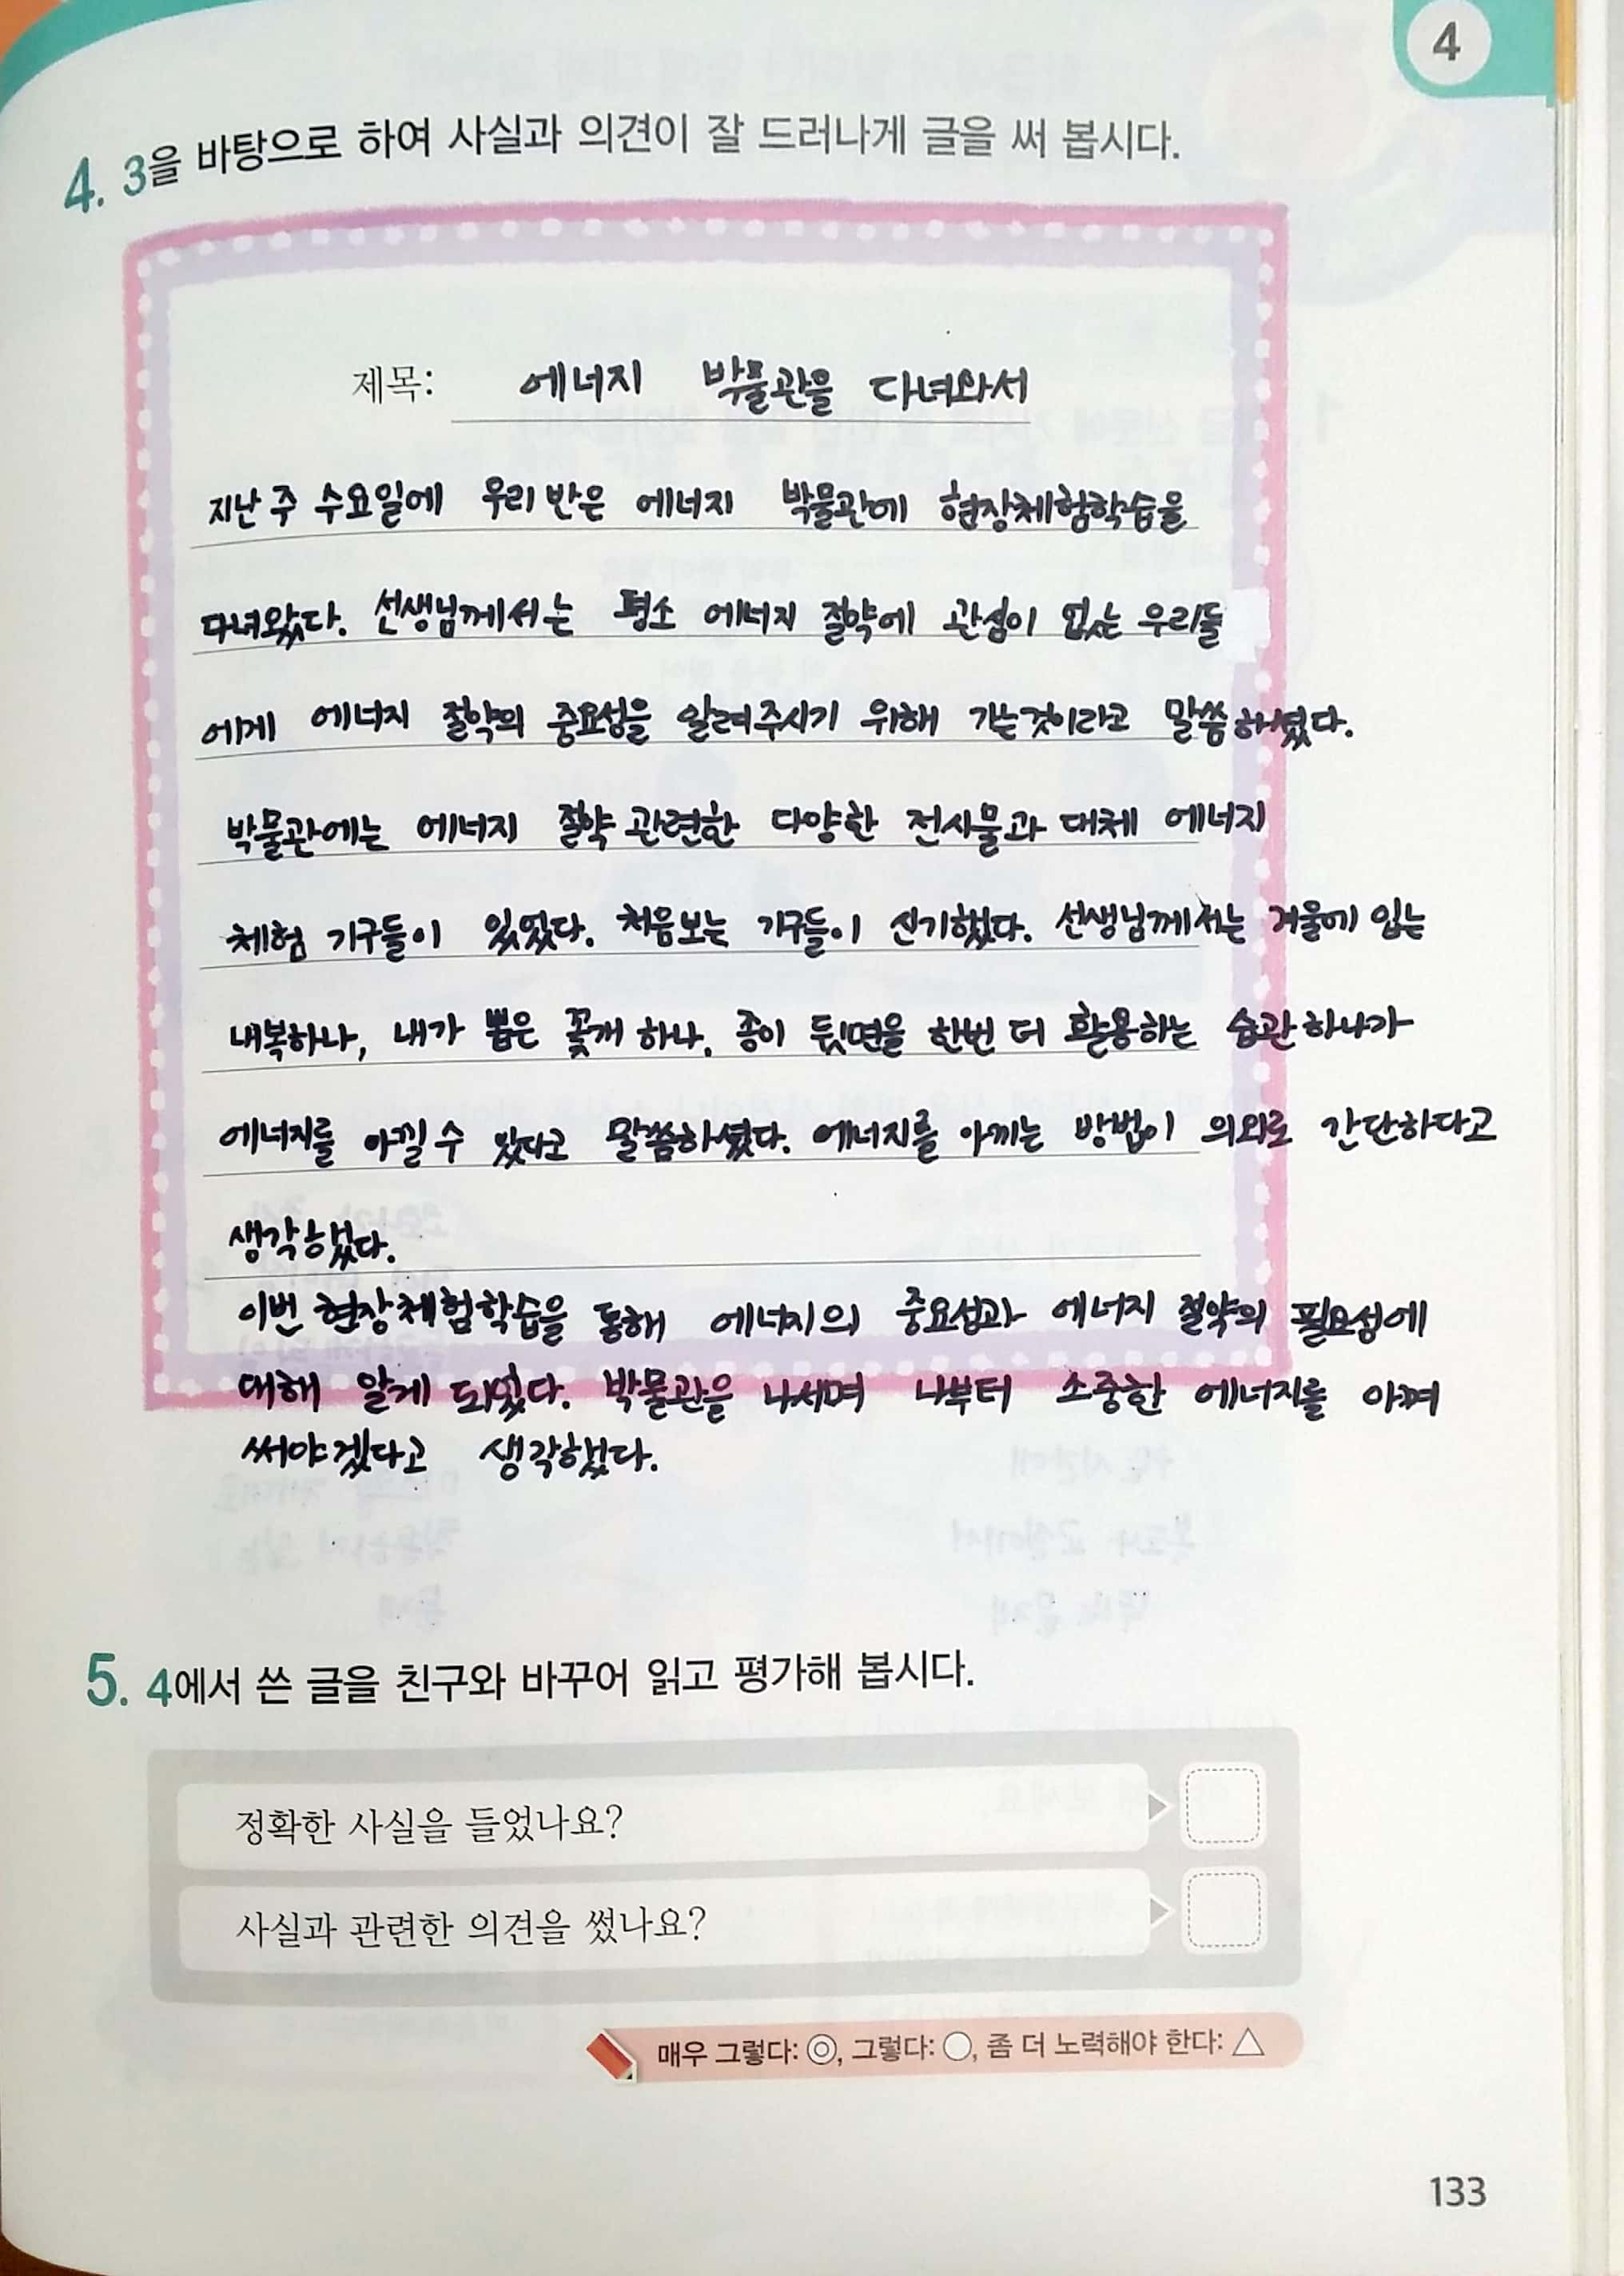 4
4. 3을 바탕으로 하여 사실과 의견이 잘 드러나게 글을 써 봅시다.
제목: 에너지 박물관을 다녀와서
지난 주 수요일에 우리 반은 에너지 박물관에 현장체험학습을
다녀왔다. 선생님께서는 평소 에너지 절약에 관심이 없는 우리들
에게 에너지 절약의 중요성을 알려주시기 위해 가는것이라고 말씀하셨다.
박물관에는 에너지 절약 관련한 다양한 전시물과 대체 에너지
체험 기구들이 있었다. 처음보는 기구들이 신기했다. 선생님께서는 겨울에 입는
내복하나, 내가 뽑은 꽂개 하나, 종이 뒷면을 한번 더 활용하는 습관하나가
에너지를 아낄 수 있다고 말씀하셨다. 에너지를 아끼는 방법이 의외로 간단하다고
생각했다.
이번 현장체험학습을 통해 에너지의 중요성과 에너지 절약의 필요성에
대해 알게 되었다. 박물관을 나서며 나부터 소중한 에너지를 아껴
써야겠다고 생각했다.
5. 4에서 쓴 글을 친구와 바꾸어 읽고 평가해 봅시다.
정확한 사실을 들었나요?
사실과 관련한 의견을 썼나요?
매우 그렇다: ◎, 그렇다: ○, 좀 더 노력해야 한다: △
133